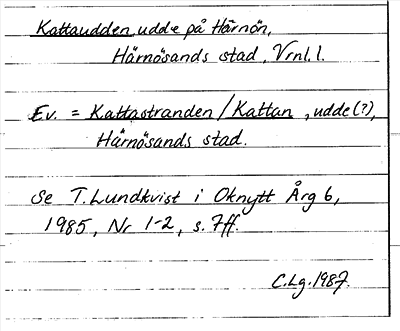 Kattaudden, udde på Härnön,
Härnösands stad, Vrnl. l.
Ev. = Kattastranden/Kattan, udde(?),
Härnösands stad.
Se T. Lundkvist i Oknytt Årg 6,
1985, Nr 1-2, s. 7ff.
C.Lg. 1987.